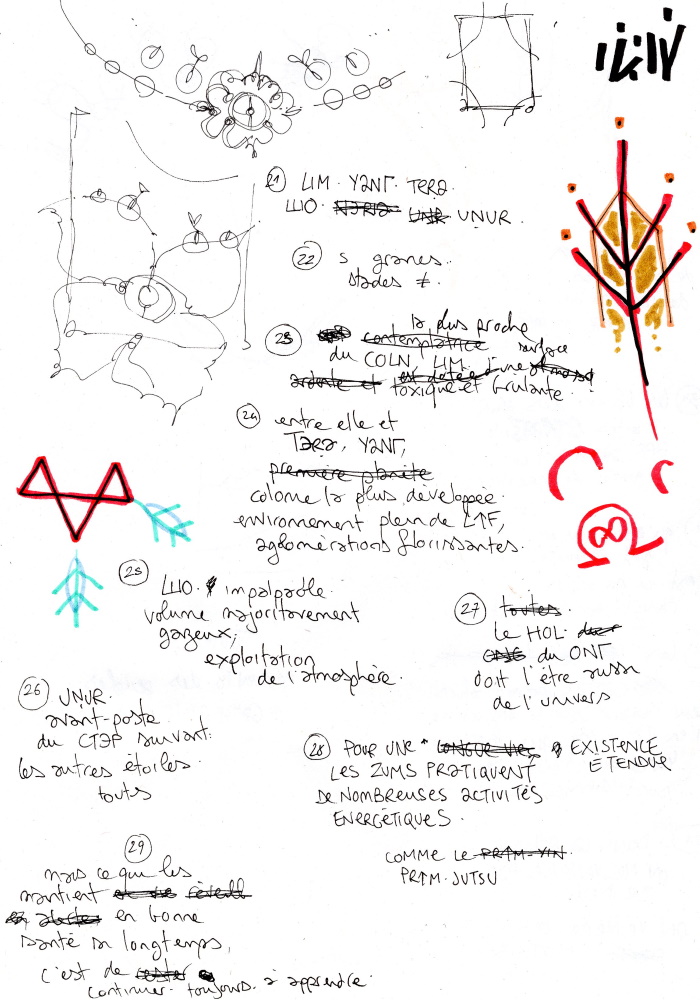 21 LIM. YƧNT. TERƧ.
ШO. UNUR.
22 5 graines.
stades ≠.
23 la plus proche
contemplatrice surface
du COLN, LIM, d'une
toxique et brulante.
24 entre elle et
TƏRƧ, YƧNT,
première planète
colonie la plus développée.
environnement plein de
agglomérations florissantes.
25 ШO. impalpable.
volume majoritairement
gazeux,
exploitation
de l'atmosphère.
26 UNUR.
avant-poste
du CTƏP suivant:
les autres étoiles.
toutes
27 toutes.
Le HOL
du ONT
doit l'être aussi
de l'univers
28 POUR UNE "LONGUE VIE, EXISTENCE
ETENDUE
LES ZUMS PRATIQUENT
DE NOMBREUSES ACTIVITÉS
ENERGÉTIQUES.
COMME LE PRTM-YIN.
PRTM-JUTSU
29
mais ce que les
maintient
en bonne
santé si longtemps,
c'est de rester
continuer toujours à apprendre.